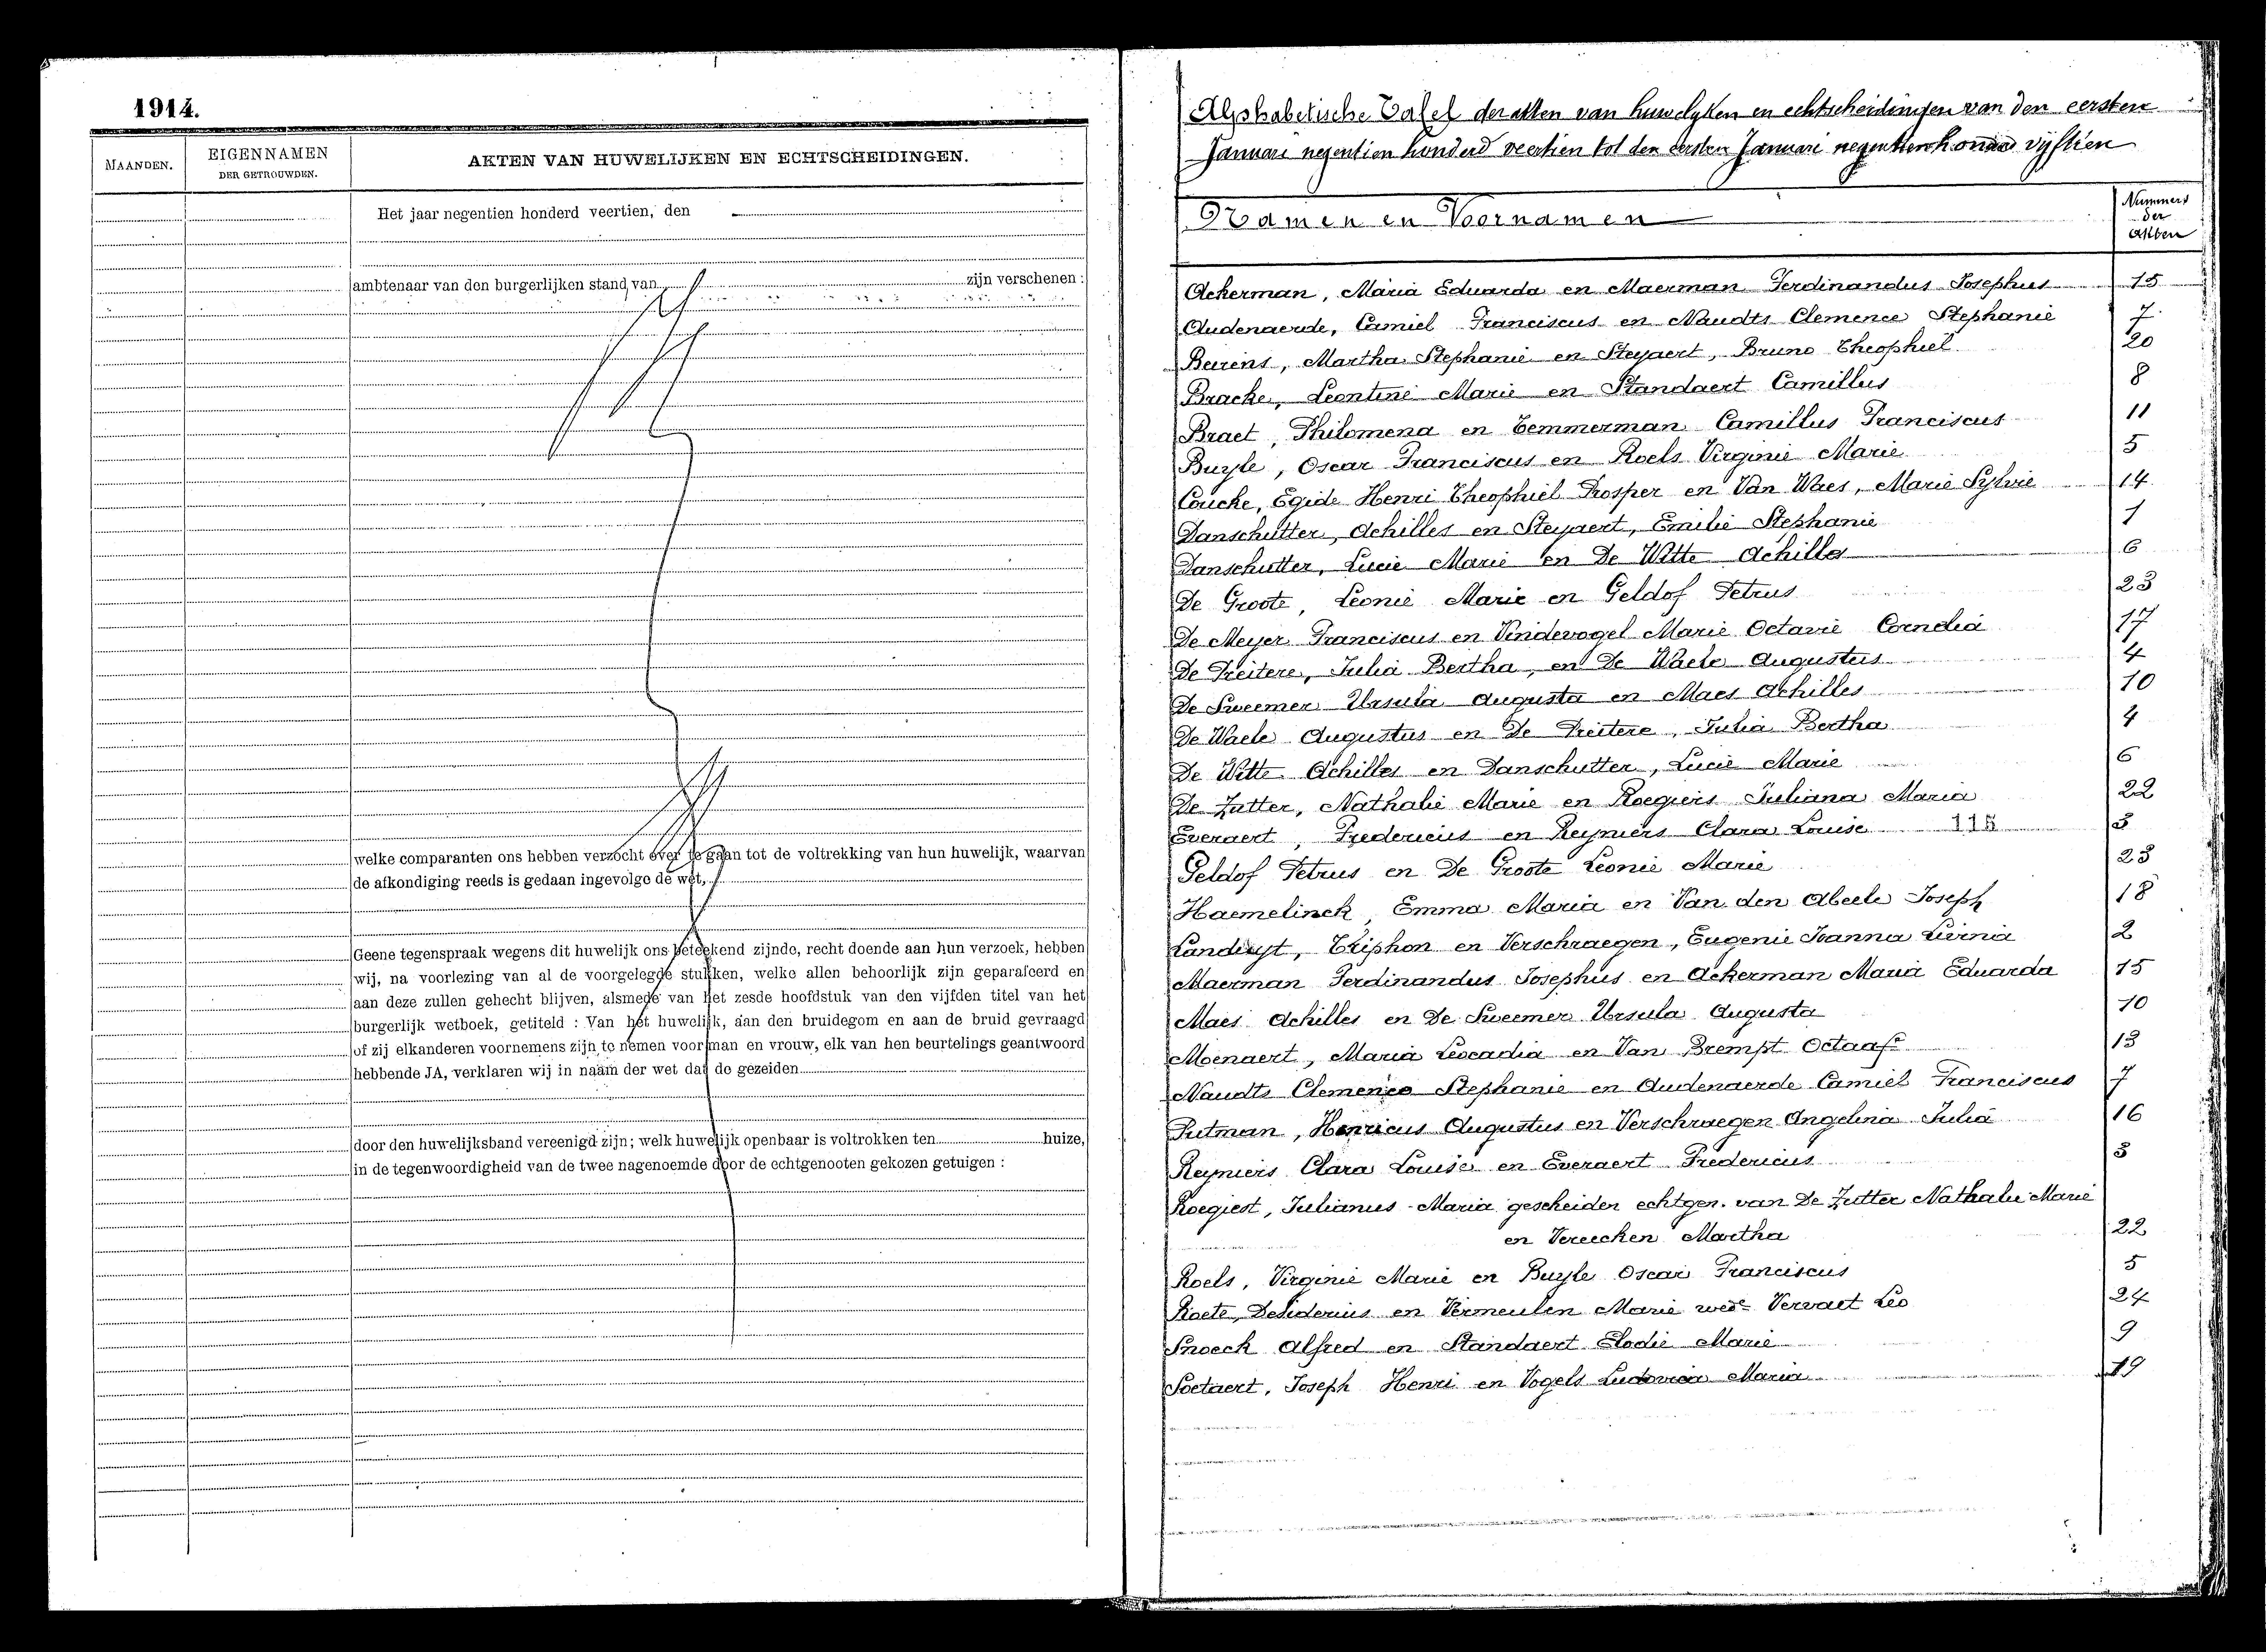 1914.
MAANDEN.
EIGENNAMEN
DER GETROUWDEN.
AKTEN VAN HUWELIJKEN EN ECHTSCHEIDINGEN.
Het jaar negentien honderd veertien, den
ambtenaar van den burgerlijken stand van zijn verschenen :
welke comparanten ons hebben verzocht over te gaan tot de voltrekking van hun huwelijk, waarvan
de afkondiging reeds is gedaan ingevolge de wet,
Geene tegenspraak wegens dit huwelijk ons beteekend zijnde, recht doende aan hun verzoek, hebben
wij, na voorlezing van al de voorgelegde stukken, welke allen behoorlijk zijn geparafeerd en
aan deze zullen gehecht blijven, alsmede van het zesde hoofdstuk van den vijfden titel van het
burgerlijk wetboek, getiteld : Van het huwelijk, aan den bruidegom en aan de bruid gevraagd
of zij elkanderen voornemens zijn te nemen voor man en vrouw, elk van hen beurtelings geantwoord
hebbende JA, verklaren wij in naam der wet dat de gezeiden
door den huwelijksband vereenigd zijn; welk huwelijk openbaar is voltrokken ten huize,
in de tegenwoordigheid van de twee nagenoemde door de echtgenooten gekozen getuigen :
Alphabetische Tafel der akten van huwelyken en echtscheidingen van den eersten
Januari negentien honderd veertien tot den eersten Januari negentien honderd vijftien
Namen en Voornamen
Nummers
der
akten
Ackerman, Maria Eduarda en Maerman Ferdinandus Josephus 15
Audenaerde, Camiel Franciscus en Naudts Clemence Stephanie 7
Beirens, Martha Stephanie en Steyaert, Bruno Theophiel 20
Bracke, Leontine Marie en Standaert Camillus 8
Braet, Philomena en Temmerman Camillus Franciscus 11
Buyle, Oscar Franciscus en Roels Virginie Marie 5
Coucke, Egide Henri Theophiel Prosper en Van Waes, Marie Sylvie 14
Danschutter, Achilles en Steyaert, Emilie Stephanie 1
Danschutter, Lucie Marie en De Witte Achilles 6
De Groote, Leonie Marie en Geldof Petrus 23
De Meyer Franciscus en Vindevogel Marie Octavie Cornelia 17
De Preitere, Julia Bertha, en De Waele Augustus 4
De Sweemer Ursula Augusta en Maes Achilles 10
De Waele Augustus en De Preitere, Julia Bertha 4
De Witte Achilles en Danschutter, Lucie Marie 6
De Zutter, Nathalie Marie en Roegiers Juliana Maria 22
Everaert, Fredericus en Reyniers Clara Louise 115 3
Geldof Petrus en De Groote Leonie Marie 23
Haemelinck, Emma Maria en Van den Abeele Joseph 18
Landuyt, Triphon en Verschraegen, Eugenie Joanna Livina 2
Maerman Ferdinandus Josephus en Ackerman Maria Eduarda 15
Maes Achilles en De Sweemer Ursula Augusta 10
Moenaert, Maria Leocadia en Van Brempt Octaaf 13
Naudts Clemence Stephanie en Audenaerde Camiel Franciscus 7
Putman, Henricus Augustus en Verschraegen Angelina Julia 16
Reyniers Clara Louise en Everaert Fredericus 3
Roegiest, Julianus Maria gescheiden echtgen. van De Zutter Nathalie Marie
en Vereecken Martha 22
Roels, Virginie Marie en Buyle Oscar Franciscus 5
Roete, Desiderius en Vermeulen Marie wed. Vervaet Leo 24
Snoeck Alfred en Standaert Elodie Marie 9
Soetaert, Joseph Henri en Vogels Ludovica Maria 19